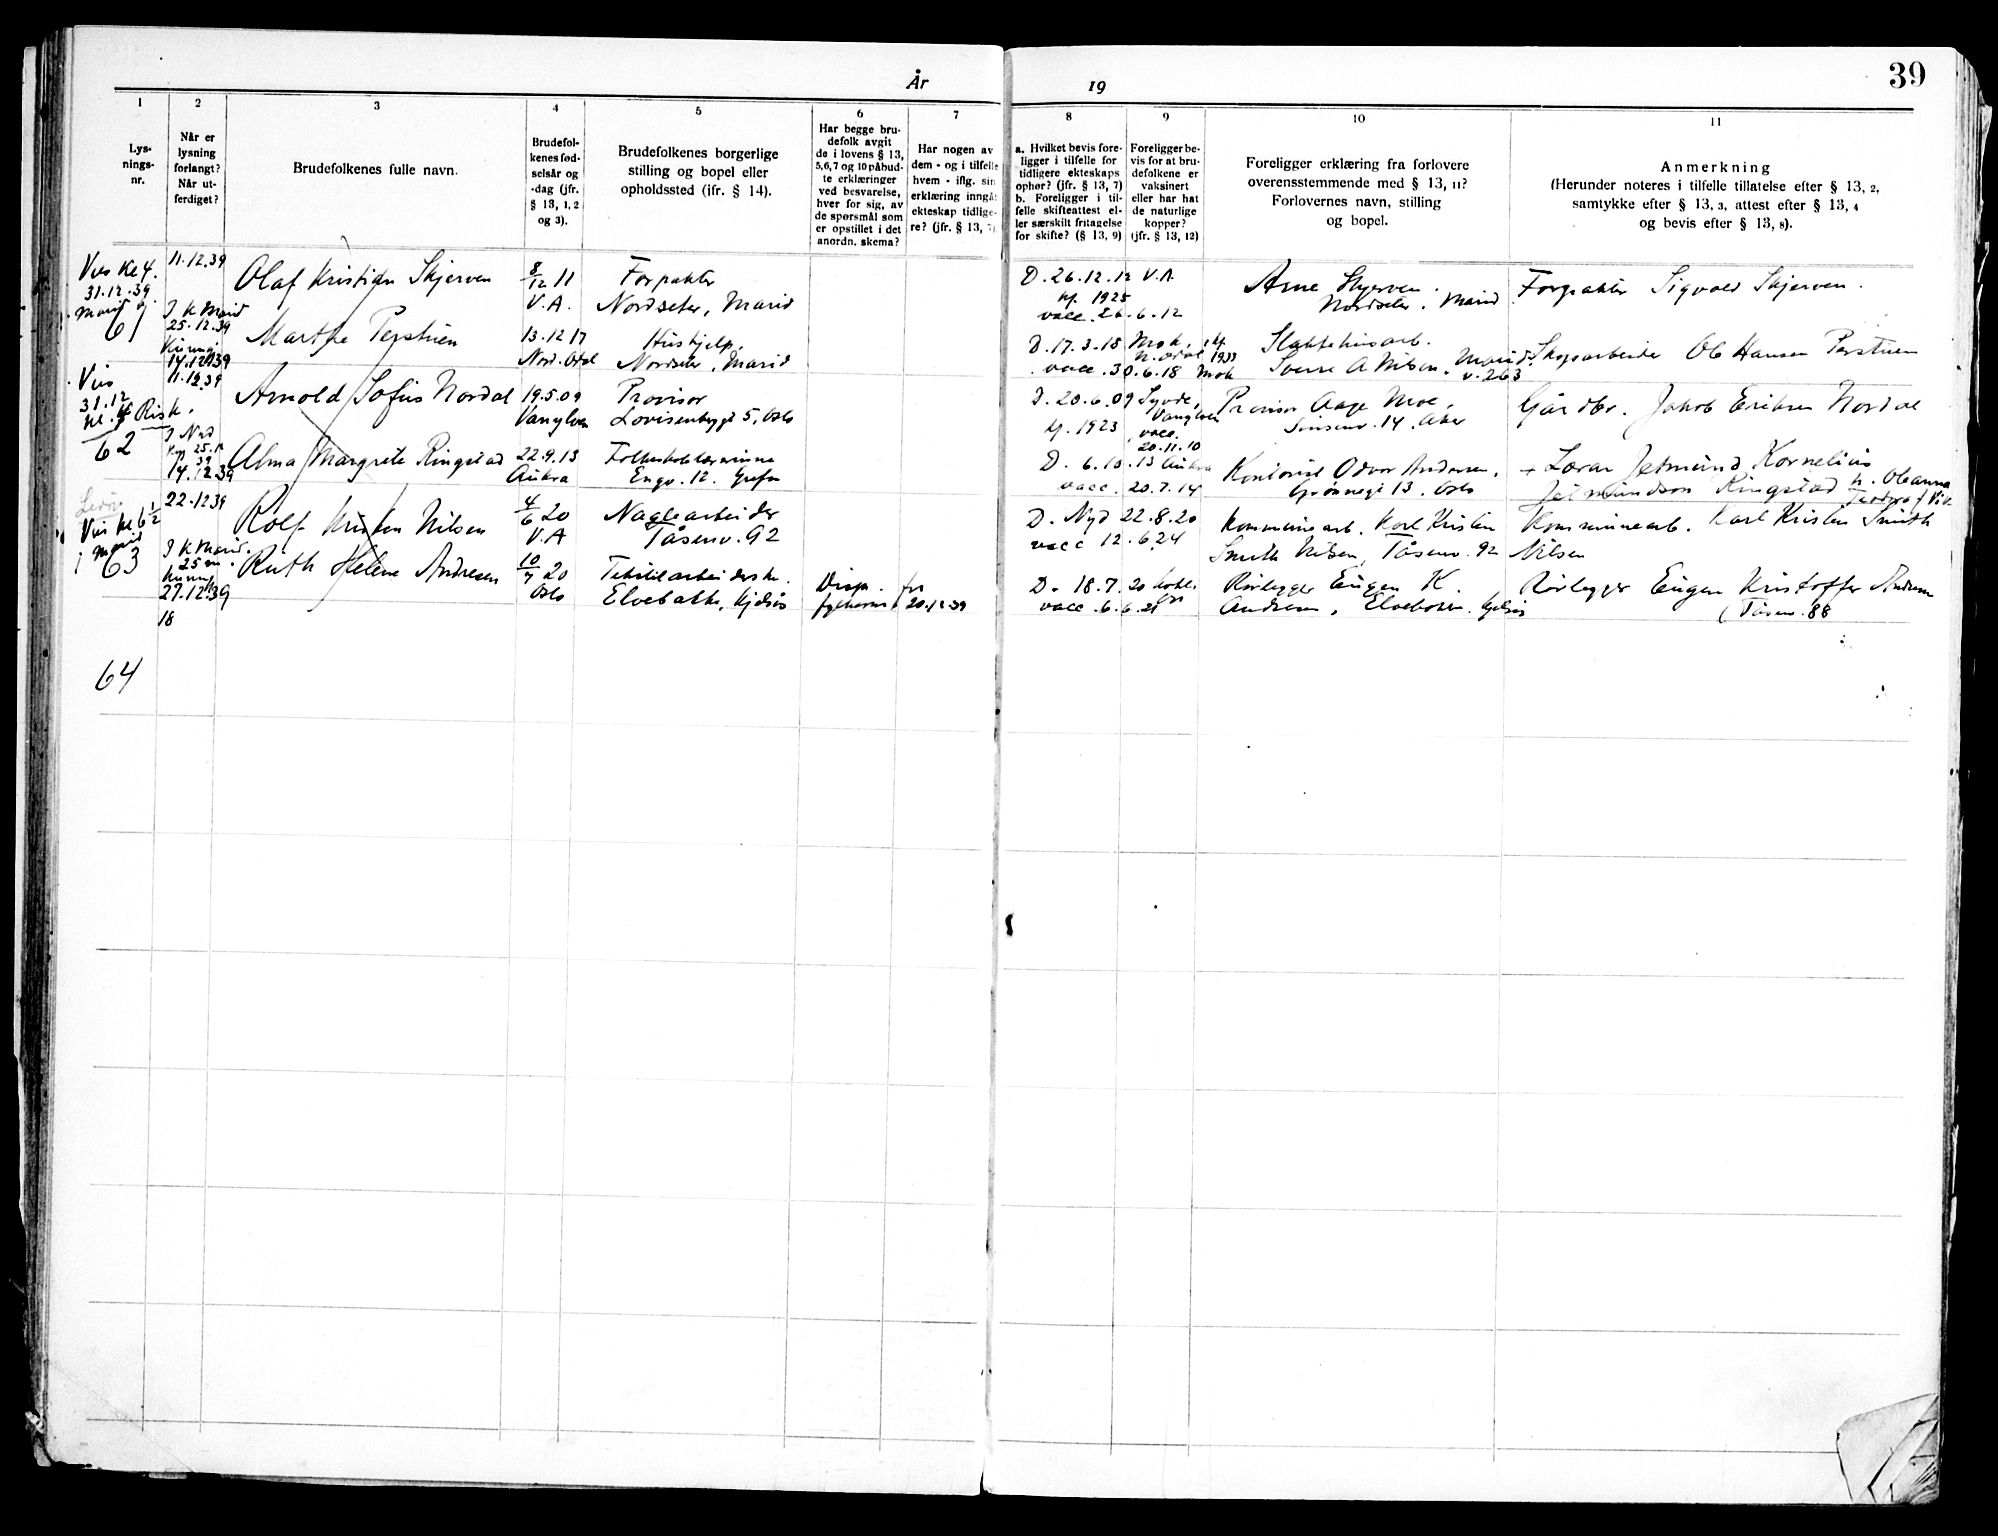 År 19
39
1 2 3 4 5 6 7 8 9 10 11
Lys-
nings-
nr.
Når er
lysning
forlangt?
Når ut-
ferdiget?
Brudefolkenes fulle navn.
Brudefol-
kenes fød-
selsår og
-dag (jfr.
§ 13, 1, 2
og 3).
Brudefolkenes borgerlige
stilling og bopel eller
opholdssted (ifr. § 14).
Har begge bru-
defolk avgit
de i lovens § 13,
5,6,7 og 10 påbud-
te erklæringer
ved besvarelse,
hver for sig, av
de spørsmål som
er opstillet i det
anordn. skema?
Har nogen av
dem - og i tilfelle
hvem - iflg. sin
erklæring inngåt
ekteskap tidlige-
re? (jfr. § 13, 7)
a. Hvilket bevis fore-
ligger i tilfelle for
tidligere ekteskaps
ophør? (jfr. § 13, 7)
b. Foreligger i til-
felle skifteattest el-
ler særskilt fritagelse
for skifte? (§ 13, 9)
Foreligger be-
vis for at bru-
defolkene er
vaksinert
eller har hat
de naturlige
kopper?
(jfr. § 13, 12)
Foreligger erklæring fra forlovere
overensstemmende med § 13, 11?
Forlovernes navn, stilling
og bopel.
Anmerkning
(Herunder noteres i tilfelle tillatelse efter § 13, 2,
samtykke efter § 13, 3, attest efter § 13, 4
og bevis efter § 13, 8).
Vies kl 4.
31.12.39
61
11.12.39
25.12.39
14.12.39
Olaf Kristian Skjerven
8/12 11
V.A.
Forpakter
Nordseter, Marid
D. 26.12.12 V.A.
kf. 1925
vacc. 26.6.12
Arne Skjerven.
Nordseter. Marid
Forpakter Sigvald Skjerven.
Marthe Perstuen
13.12 17
Hushjelp.
Nordseter, Marid
D. 17.3.18
vacc. 30.6.18
Slaktehusarb.
Sverre A Nilsen. Marid.
v. 263
Skogsarbeider Ole Hansen Perstuen
Vies
31.12
62
11.12.39
14.12.39
Arnold Sofus Nordal
19.5.09
Vanylven
Provisor
Lovisenberggt 5, Oslo
D. 20.6.09
kf. 1923
Vanylven
vacc.
20.11.10
Provisor Aage Moe,
Sinsenv. 14. Aker
Gårdbr. Jakob Eriksen Nordal
Alma Margrete Ringstad
22.9.13
Aukra
Folkeskolelærerinne
Engv. 12. Grefsen
D. 6.10.13 Aukra
vacc. 20.7.14
Kontorist Odvar Andersen,
Grønnegt 13. Oslo
+ Lærer Jetmund Kornelius
Jetmundson Ringstad
Vies kl 6 1/2
i Marid
63
22.12 39
27.12 39
Rolf Kristen Nilsen
4/6 20
V.A
Naglearbeider
Tåsenv. 92
D. Nyd 22.8.20
vacc 12.6.24
Kommunearb. Karl Kristen
Smith Nilsen, Tåsenv. 92
Kommunearb. Karl Kristen Smith
Nilsen
Ruth Helene Andresen
10/7 20
Oslo
Tekstilarbeiderske.
Elvebakke, Kjelsås
20.12.39
D. 18.7.20
vacc. 6.6.21
Rørlegger Eugen K.
Andresen, Elvebakken. Kjelsås
Rørlegger Eugen Kristoffer Andresen
(Tåsenv. 88
18
64